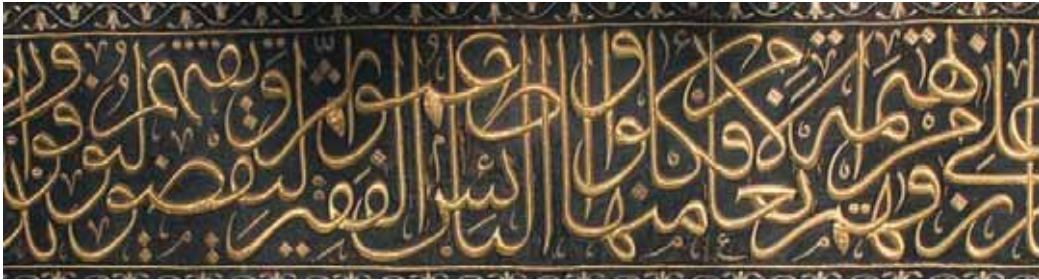 على ما رزقهم من بهيمة الأنعام فكلوا منها وأطعموا البائس الفقير ثم ليقضوا تفثهم وليوفوا